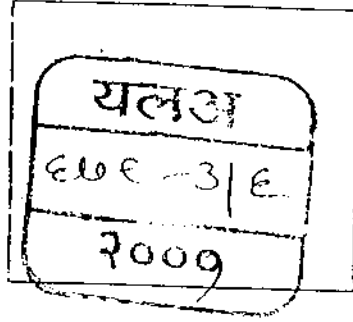 यलअ
६७६-३/६
२००१